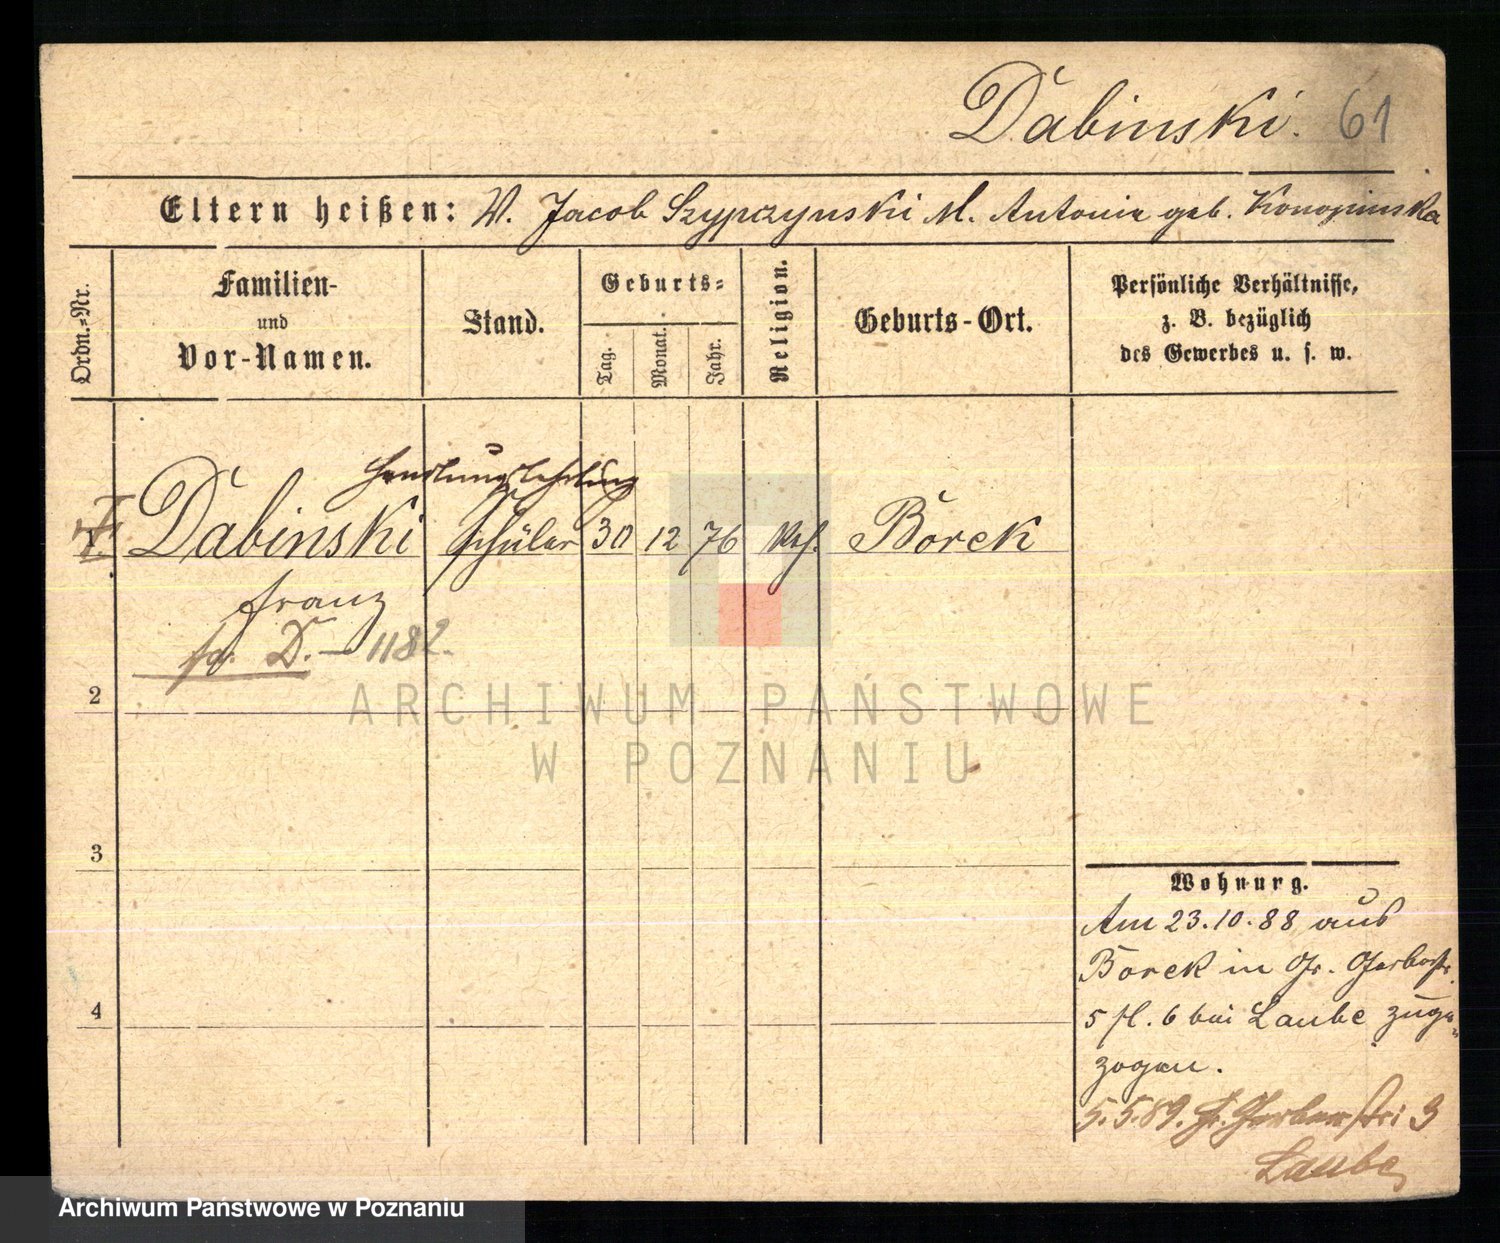 Dabinski. 61
Eltern heißen: V. Jacob Szypczynski M. Antonie geb. Konopinska
Ordn.-Nr.
Familien-
und
Vor-Namen.
Stand.
Geburts-
Tag.
Monat.
Jahr.
Religion.
Geburts-Ort.
Persönliche Verhältnisse,
z. B. bezüglich
des Gewerbes u. s. w.
Handlungslehrling
Dabinski Schüler 30 12 76 Kaf. Borek
Franz
D. - 1182.
2
ARCHIWUM PAŃSTWOWE
W POZNANIU
3
4
Wohnung.
Am 23.10.88 aus
Borek in Gr. Gerberstr.
5 fl. 6 bei Laube zuge-
zogen.
5.5.89. Gr. Gerberstr. 3
Laube
Archiwum Państwowe w Poznaniu